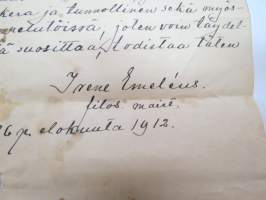 kera ja tunnollinen sekä myös-
petutöissä, joten voin täydel-
ä suosittaa, todistaa täten
Irene Emeléus.
filos maist.
6 p. elokuuta 1912.